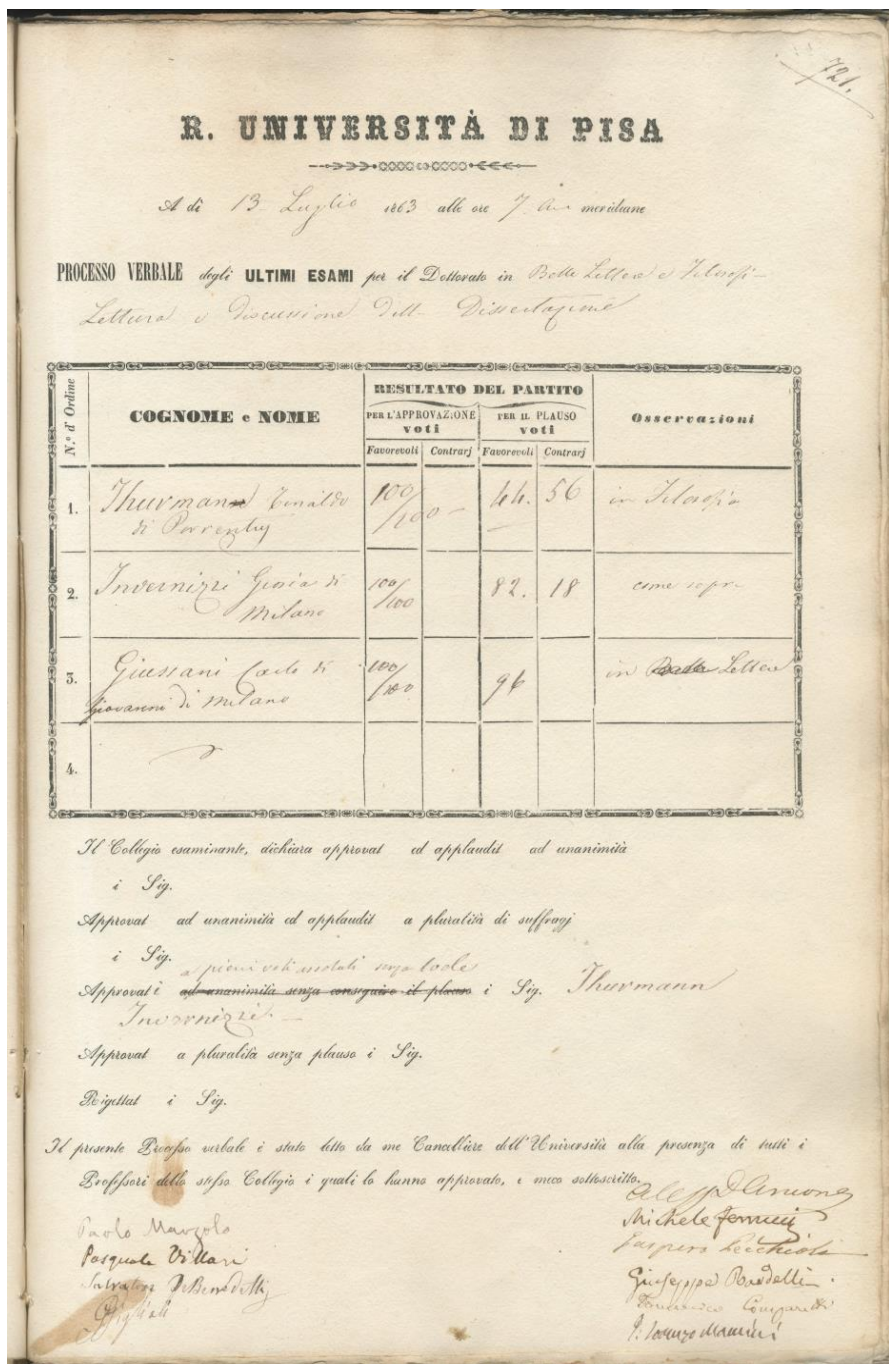 721.
R. UNIVERSITÀ DI PISA
A dì 13 Luglio 1863 alle ore 7. Ant meridiane
PROCESSO VERBALE degli ULTIMI ESAMI per il Dottorato in Belle Lettere e Filosofi-
Lettura e discussione dell- Dissertazione
N.º d' Ordine
COGNOME e NOME
RESULTATO DEL PARTITO
PER L'APPROVAZIONE voti
PER IL PLAUSO voti
Osservazioni
Favorevoli Contrarj Favorevoli Contrarj
1. Thurmann di Porrentruy 100/100 - 44. 56 in Filosofia
2. Invernizzi Giosia di Milano 100/100 82. 18 come sopr-
3. Giussani Carlo di Giovanni di Milano 100/100 96 in Belle Lettere
4.
Il Collegio esaminante, dichiara approvat ed applaudit ad unanimità
i Sig.
Approvat ad unanimità ed applaudit a pluralità di suffragj
i Sig.
a pieni voti senza lode
Approvati ad unanimità senza conseguire il plauso i Sig. Thurmann
Invernizzi. -
Approvat a pluralità senza plauso i Sig.
Rigettat i Sig.
Il presente Processo verbale è stato letto da me Cancelliere dell'Università alla presenza di tutti i
Professori dello stesso Collegio i quali lo hanno approvato, e meco sottoscritto.
Aless D'Ancona
Paolo Marzolo
Michele Ferrucci
Pasquale Villari
Salvatore De Benedetti
Giuseppe Bardelli.
Domenico Comparetti